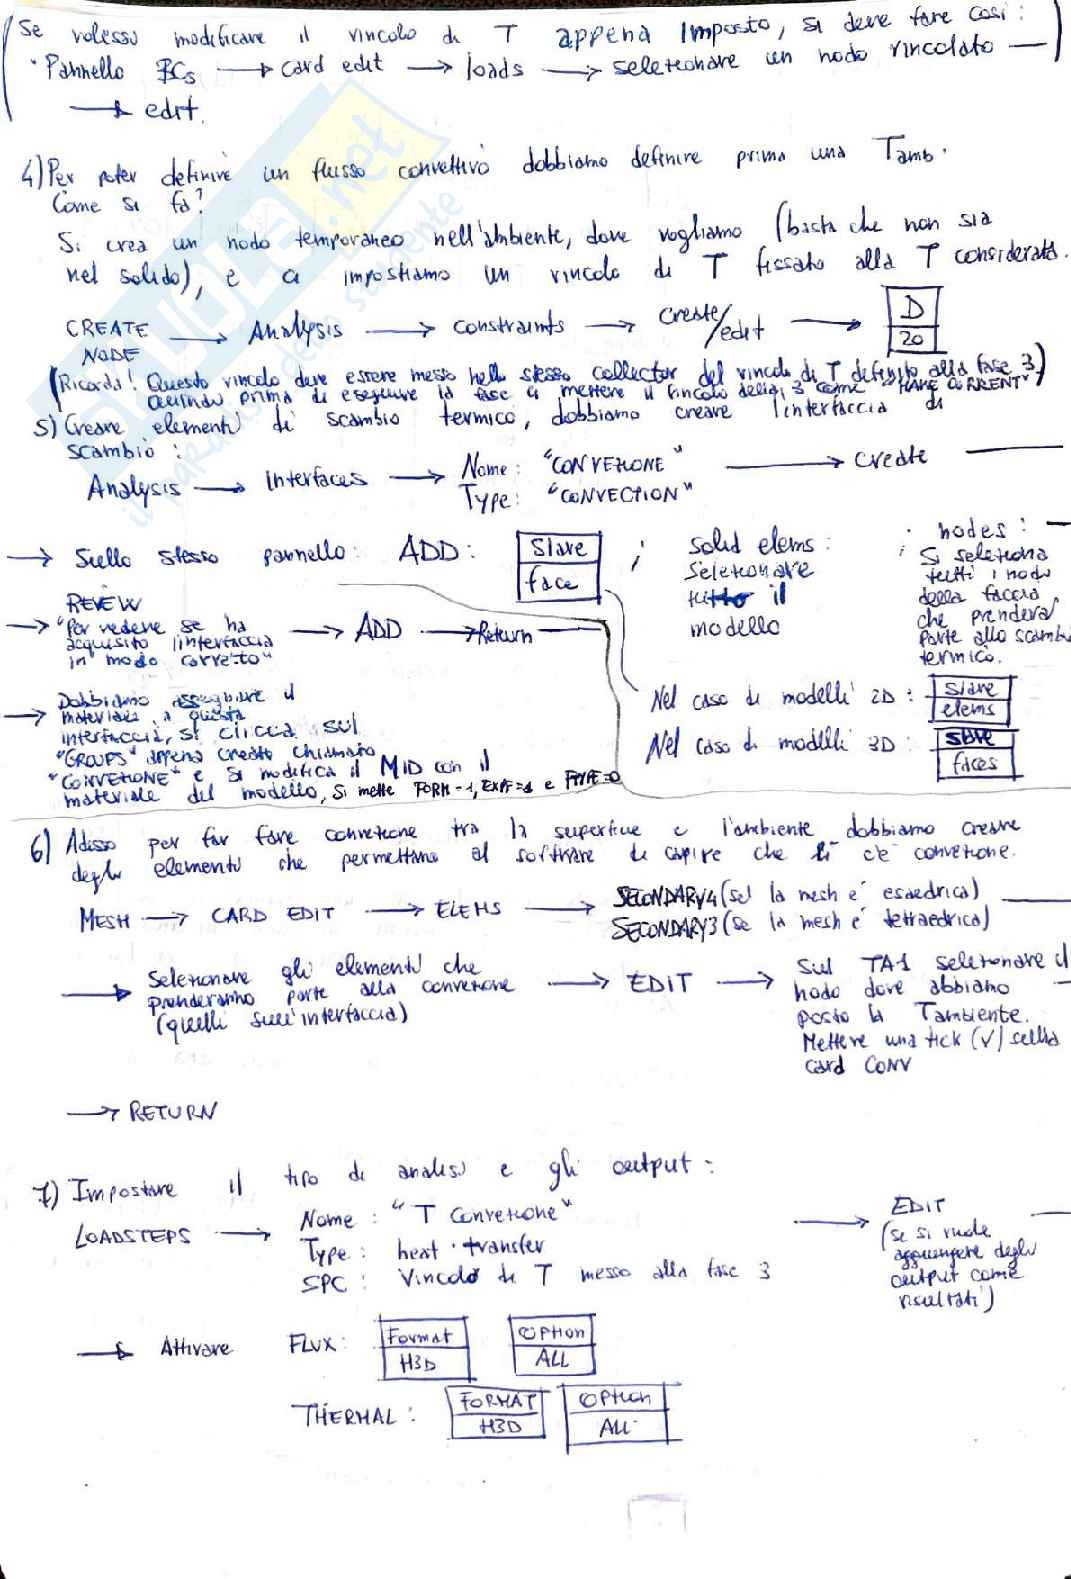 Se volessi modificare il vincolo di T appena imposto, si deve fare così:
· Pannello BCs → card edit → loads → selezionare un nodo vincolato —
→ edit.
4) Per poter definire un flusso convettivo dobbiamo definire prima una Tamb.
Come si fa?
Si crea un nodo temporaneo nell'ambiente, dove vogliamo (basta che non sia
nel solido), e ci impostiamo un vincolo di T fissato alla T considerata.
CREATE NODE → Analysis → constraints → create/edit → D 20
(Ricorda! Questo vincolo deve essere messo nello stesso collector del vincolo di T definito alla fase 3,
quindi prima di eseguire la fase 4 mettere il vincolo della 3 come "MAKE CURRENT")
5) Creare elementi di scambio termico, dobbiamo creare l'interfaccia di
scambio:
Analysis → interfaces → Nome: "CONVEZIONE" → create —
Type: "CONVECTION"
→ Sullo stesso pannello: ADD: slave face ; solid elems: selezionare tutto il modello ; · nodes: —
Si seleziona
tutti i nodi
della faccia
che prenderà
parte allo scambio
termico.
→ REVIEW
"Per vedere se ha
acquisito l'interfaccia
in modo corretto" → ADD → Return —
Nel caso di modelli 2D: slave elems
Nel caso di modelli 3D: slave faces
→ Dobbiamo assegnare il
materiale a questa
interfaccia, si clicca sul
"GROUPS" appena creato chiamato
"CONVEZIONE" e si modifica il MID con il
materiale del modello, si mette FORM=1, EXPF=1 e FTYPE=0
6) Adesso per far fare convezione tra la superficie e l'ambiente dobbiamo creare
degli elementi che permettano al software di capire che lì c'è convezione.
MESH → CARD EDIT → ELEMS → SECONDARY4 (se la mesh è esaedrica) —
SECONDARY3 (se la mesh è tetraedrica)
→ Selezionare gli elementi che
prenderanno parte alla convezione
(quelli sull'interfaccia) → EDIT → Sul TA1 selezionare il
nodo dove abbiamo
posto la Tambiente.
Mettere una tick (√) sulla
card CONV
→ RETURN
7) Impostare il tipo di analisi e gli output:
LOADSTEPS → Nome: "T Convezione"
Type: heat transfer
SPC: Vincolo di T messo alla fase 3
→ EDIT —
(se si vuole
aggiungere degli
output come
risultati)
→ Attivare FLUX: Format H3D Option ALL
THERMAL: FORMAT H3D Option ALL
SKUOLA.net
il paradiso dello studente